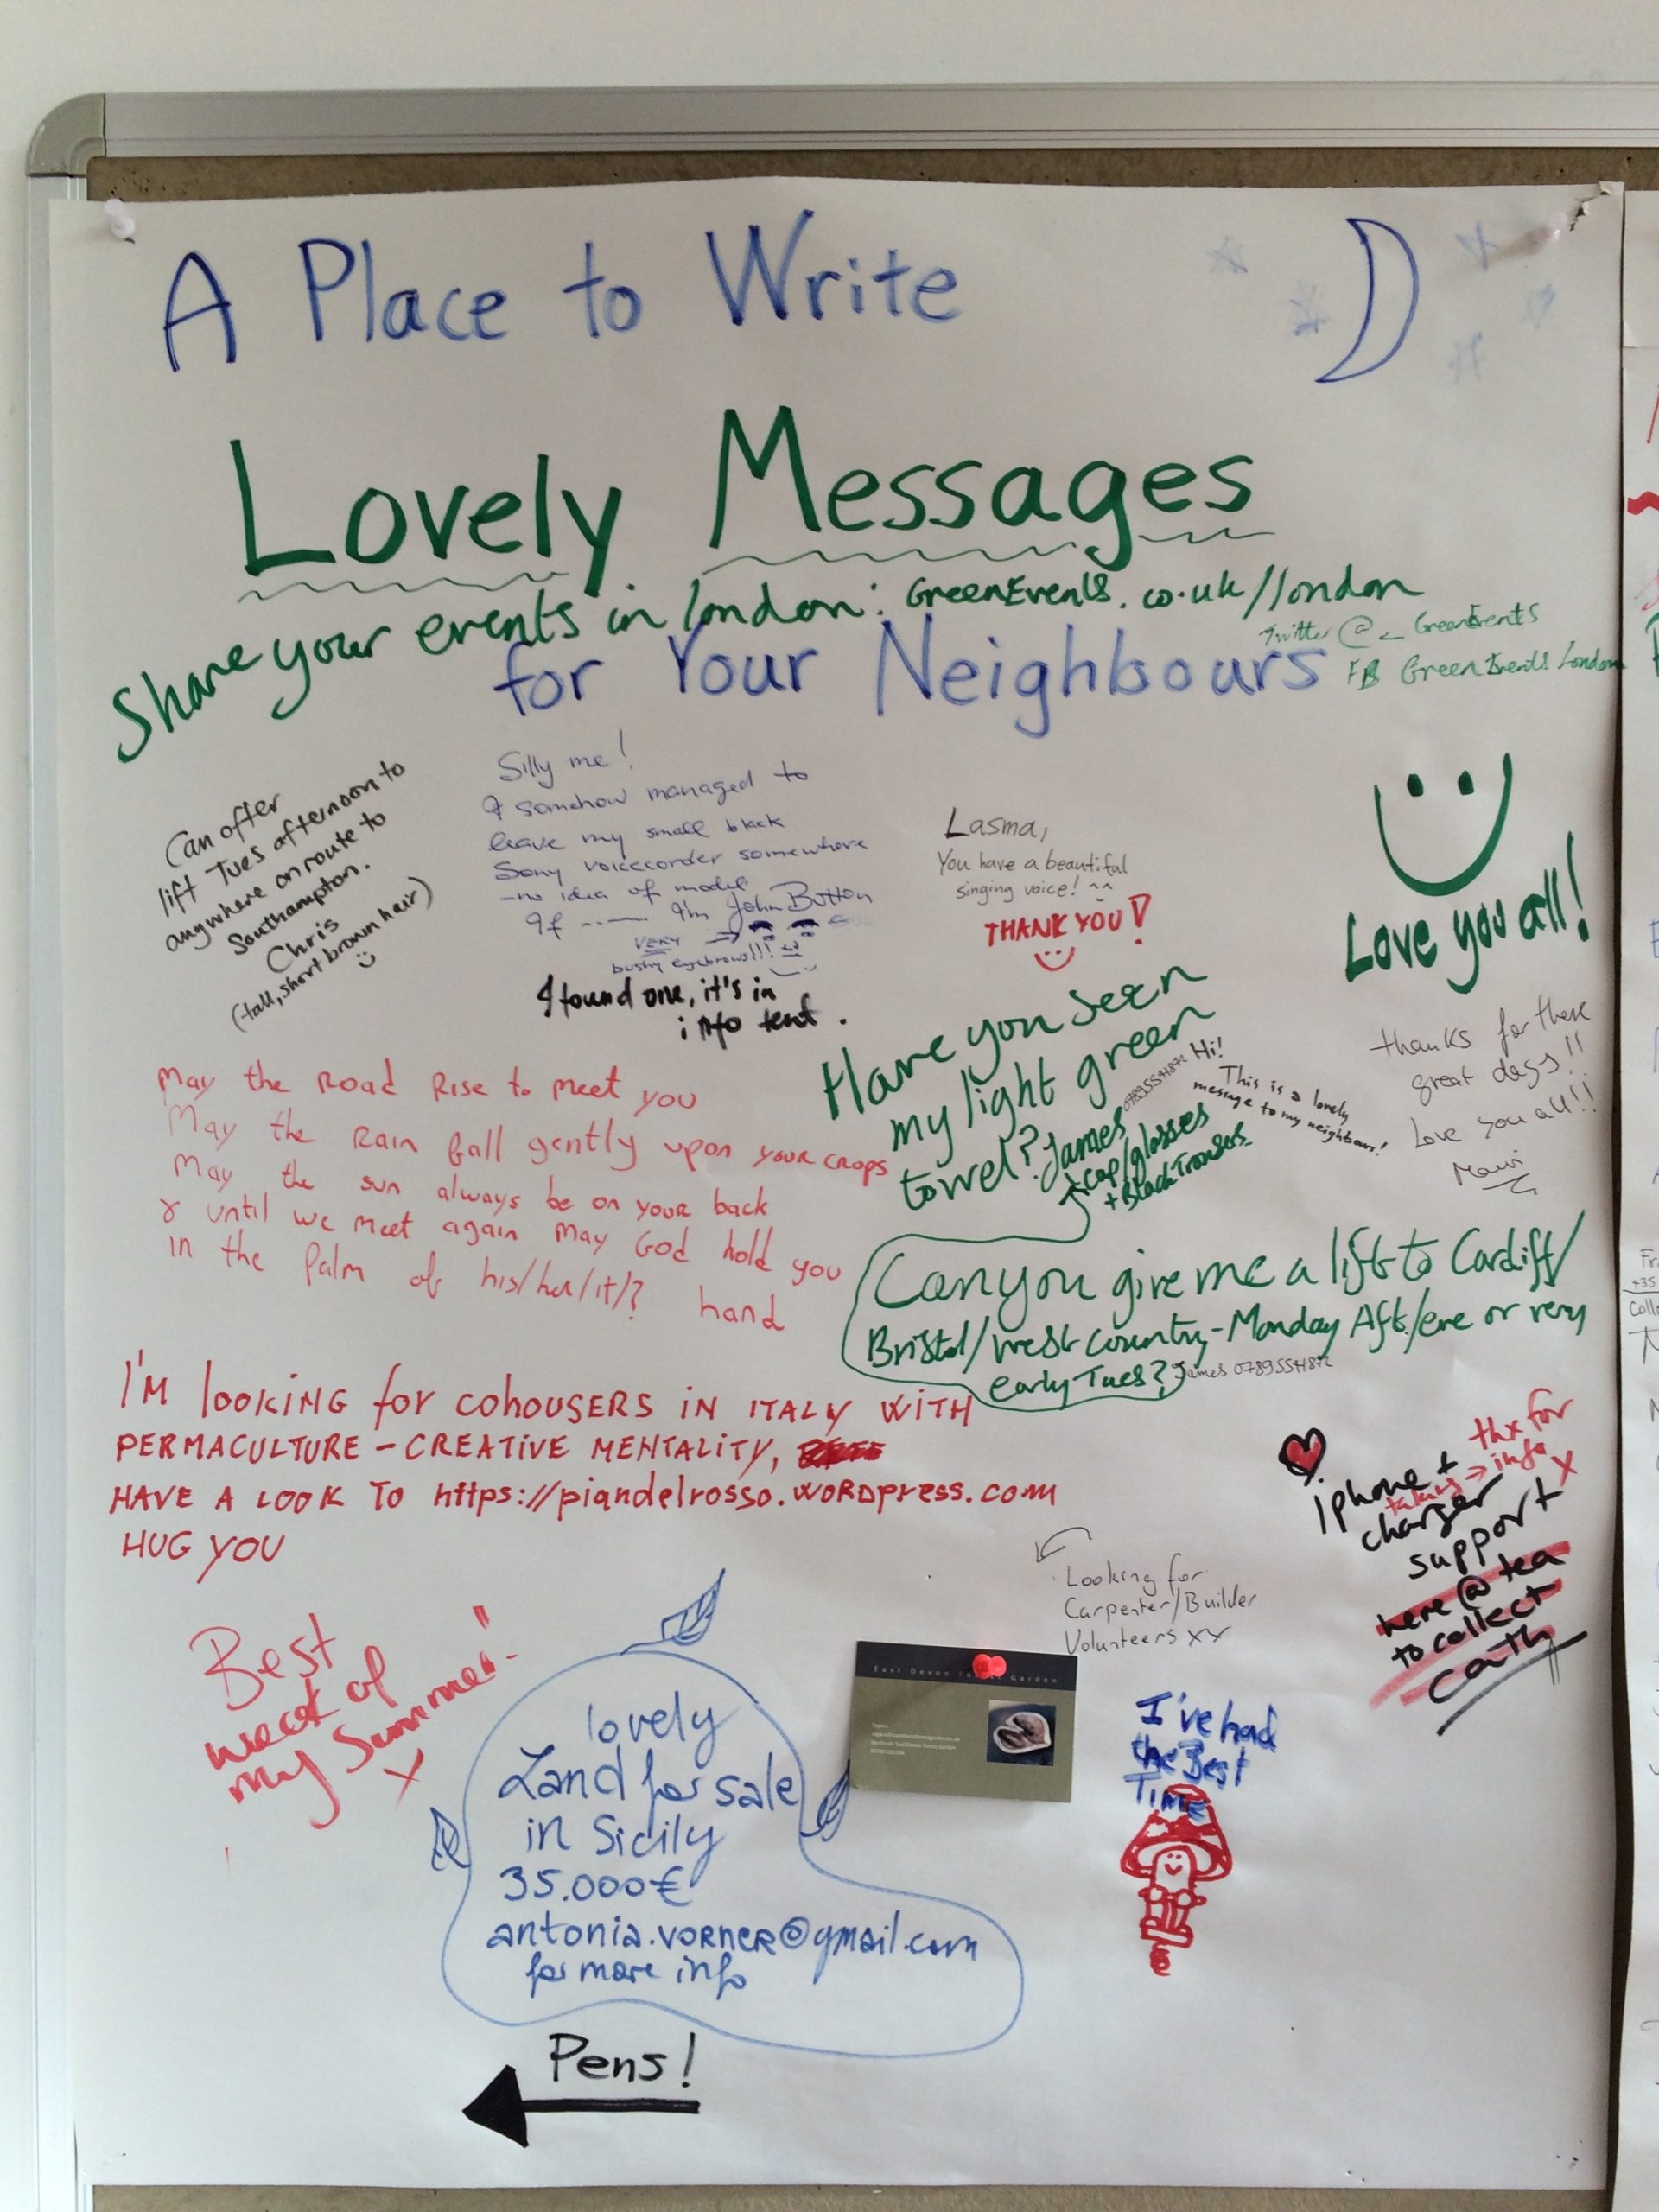 A Place to Write
Lovely Messages
Share your events in london: GreenEvents.co.uk/london
Twitter @_GreenEvents
FB GreenEvents London
for Your Neighbours
Can offer
lift Tues afternoon to
anywhere on route to
Southampton.
Chris
(tall, short brown hair)
Silly me!
I somehow managed to
leave my small black
Sony voicecorder somewhere
- no idea of model
If ------ I'm John Button
VERY
bushy eyebrows!!!
I found one, it's in
info tent.
Lasma,
You have a beautiful
singing voice! ^^
THANK YOU!
Love you all!
thanks for these
great days!!
Love you all!!
Have you seen
my light green
towel? James
+ cap/glasses
+ Black Trousers
Hi!
This is a lovely
message to my neighbour!
May the Road Rise to meet you
May the Rain fall gently upon your crops
May the sun always be on your back
& until we meet again may God hold you
in the Palm of his/her/it/? hand
Can you give me a lift to Cardiff/
Bristol/West Country - Monday Aft./eve or very
early Tues? James
I'M LOOKING for COHOUSERS IN ITALY WITH
PERMACULTURE - CREATIVE MENTALITY,
HAVE A LOOK TO https://piandelrosso.wordpress.com
HUG YOU
thx for
info x
iphone +
taking →
charger
support
here @ tea
to collect
Cath
Looking for
Carpenter/Builder
Volunteers xx
East Devon Forest Garden
Best
week of
my Summer"
x
lovely
Land for sale
in Sicily
35.000€
antonia.vorner@gmail.com
for more info
I've had
the Best
Time
Pens!